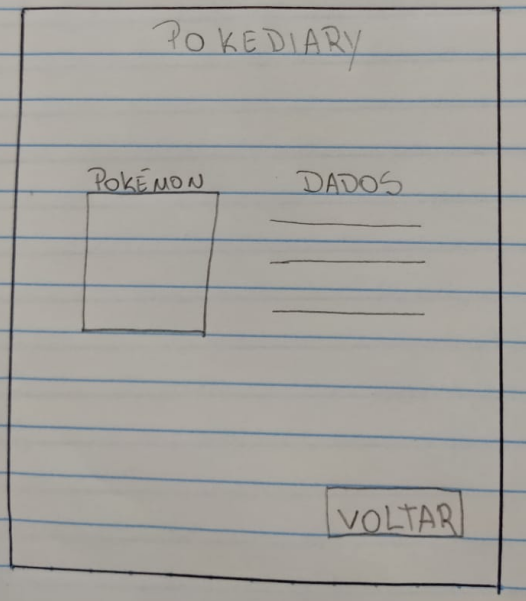 POKEDIARY
POKÉMON
DADOS
VOLTAR